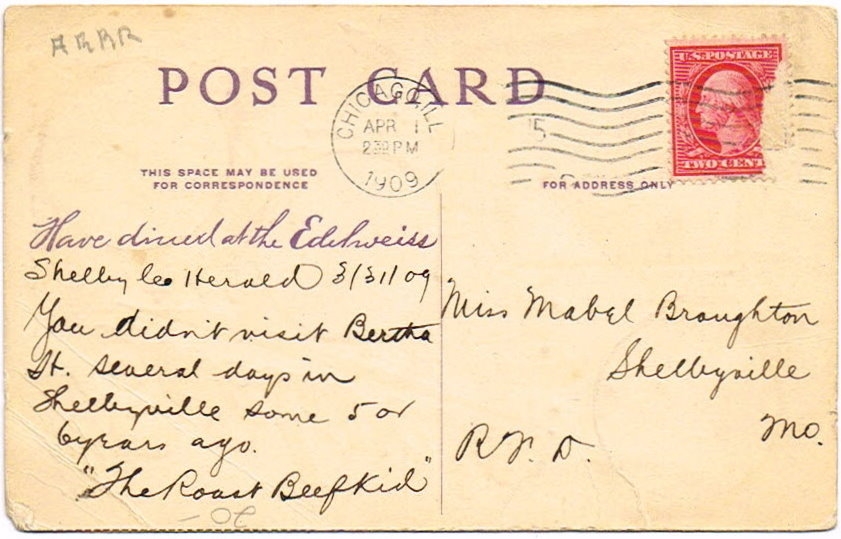 ARRR
POST CARD
U.S. POSTAGE
TWO CENT
CHICAGO, ILL
APR 1
2 30 PM
1909
THIS SPACE MAY BE USED
FOR CORRESPONDENCE
FOR ADDRESS ONLY
Have dined at the Edelweiss
Shelby Co Herald 3/31/09
You didn't visit Bertha
St. several days in
Shelbyville some 5 or
6 years ago.
"The Roast Beef Kid"
Miss Mabel Broughton
Shelbyville
Mo.
R. F. D.